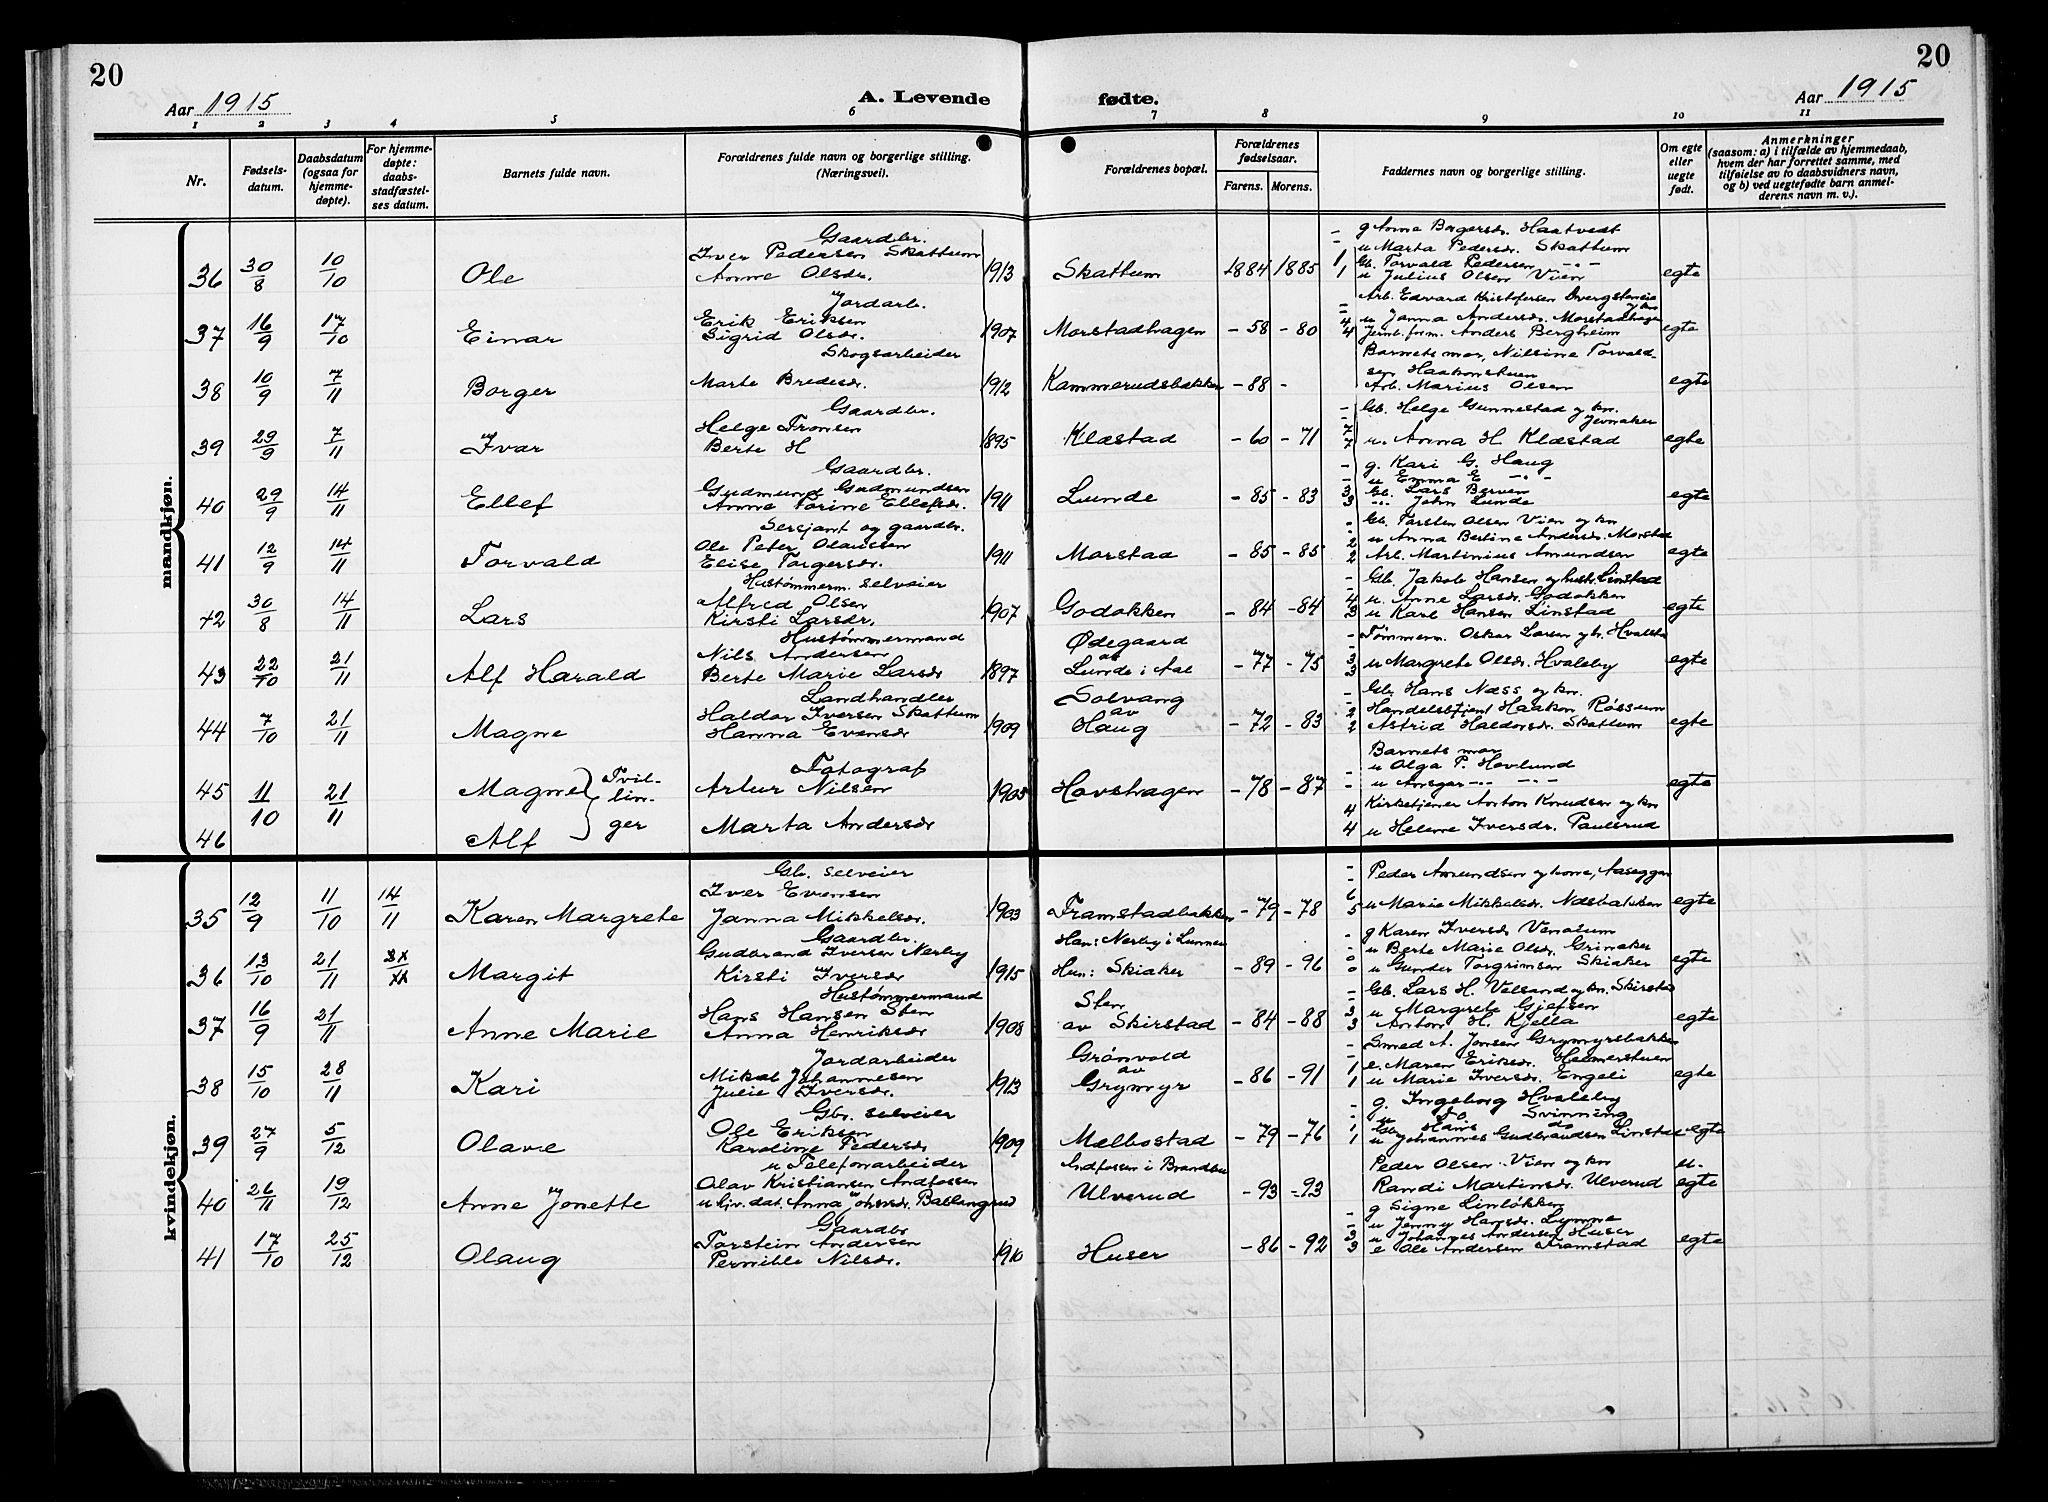 20
20
Aar 1915
A. Levende
fødte.
Aar 1915
1 2 3 4 5 6 7 8 9 10 11
Nr.
Fødsels-
datum.
Daabsdatum
(ogsaa for
hjemme-
døpte).
For hjemme-
døpte:
daabs-
stadfæstel-
ses datum.
Barnets fulde navn.
Forældrenes fulde navn og borgerlige stilling.
(Næringsvei).
Forældrenes bopæl.
Forældrenes
fødselsaar.
Farens. Morens.
Faddernes navn og borgerlige stilling.
Om egte
eller
uegte
født.
Anmerkninger
(saasom: a) i tilfælde av hjemmedaab,
hvem der har forrettet samme, med
tilføielse av to daabsvidners navn,
og b) ved uegtefødte barn anmel-
derens navn m. v.).
mandkjøn.
36 30/8 10/10 Ole
Gaardbr.
Iver Pedersen Skattum
Anne Olsdr. 1913
Skattum 1884 1885
g Anne Borgersdr. Haatvedt
u Marta Pedersdr. Skattum
Gb. Torvald Pedersen -"-
u Julius Olsen Vien
egte
37 16/9 17/10 Einar
Jordarb.
Erik Eriksen
Sigrid Olsdr. 1907
Morstadhagen - 58 - 80
Arb. Edvard Kristofersen
u Janna Andersdr. Morstadhagen
Jernb. form. Anders Bergheim
egte
38 10/9 7/11 Borger
Skogsarbeider
Marte Bredesdr. 1912
Kammerudsbakken - 88 -
Barnets mor, Nilsine Torvald-
sen Haakonstuen
Arb. Marius Olsen
egte
39 29/9 7/11 Ivar
Gaardbr.
Helge Tronsen
Berte H 1895
Klæstad - 60 - 71
Gb. Helge Gunnestad og kn.
Jevnaker
u. Anna H. Klæstad
egte
40 29/9 14/11 Ellef
Gaardbr.
Gudmund Gudmundsen
Anne Torine Ellefsdr. 1911
Lunde - 85 - 83
g. Kari G. Haug
u Emma E -"-
Gb. Lars Berven
-"- John Lunde
egte
41 12/9 14/11 Torvald
Sersjant og gaardbr.
Ole Peter Olaussen
Elise Torgersdr. 1911
Morstad - 85 - 85
Gb. Torsten Olsen Vien og kn
u Anna Bertine Andersdr. Morstad
Arb. Martinius Amundsen
egte
42 30/8 14/11 Lars
Hustømmerm. selveier
Alfred Olsen
Kirsti Larsdr. 1907
Godakken - 84 - 84
Gb. Jakob Hansen og hustr. Linstad
u. Anne Larsdr. Godakken
u Karl Hansen Linstad
egte
43 22/10 21/11 Alf Harald
Hustømmermand
Nils Andersen
Berte Marie Larsdr 1897
Ødegaard
av
Lunde i Aal - 77 - 75
Tømmerm. Oskar Larsen
u Margrete Olsdr. Hvaleby
egte
44 7/10 21/11 Magne
Landhandler
Haldor Iversen Skattum
Hanna Evensdr 1909
Solvang
av
Haug - 72 - 83
Gb. Hans Næss og kn.
Handelsbetjent Haakon Røssum
Astrid Haldorsdr. Skattum
egte
45 11/10 21/11 Magne
46 Alf
Tvil-
lin-
ger
Fotograf
Artur Nilsen
Marta Andersdr 1905
Hovshagen - 78 - 87
Barnets mor
u Olga P. Hovlund
u Ansgar -"- -"-
Kirketjener Anton Knudsen og kn
u Helene Iversdr. Paulsrud
egte
kvindekjøn.
35 12/9 11/10 14/11 Karen Margrete
Gb. selveier
Iver Evensen
Janna Mikkelsdr. 1903
Framstadbakken - 79 - 78
Peder Amundsen og kone, Aaseggen
u Marie Mikkelsdr. Næsbakken
egte
36 13/10 21/11 Margit
Gaardbr.
Gudbrand Iversen Nerby
Kirsti Iversdr 1915
Han: Nerby i Lunner
Hun: Skiaker - 89 - 96
g Karen Iversdr Venasum
u Berte Marie Olsdr. Grinaker
u Gunder Torgrimsen Skiaker
egte
37 16/9 21/11 Anne Marie
Hustømmermand
Hans Hansen Sten
Anna Henriksdr 1908
Sten
av Skirstad - 84 - 88
Gb. Lars H. Velsand og kn. Skirstad
u Margrete Gjefsen
Anton H. Kjella
egte
38 15/10 28/11 Kari
Jordarbeider
Mikal Johannesen
Julie Iversdr. 1913
Grønvold
av
Grymyr - 86 - 91
Smed A. Jonsen Grymyrsbakken
e. Maren Eriksdr. Helmerstuen
u Marie Iversdr. Engeli
egte
39 27/9 5/12 Olave
Gbr. selveier
Ole Eriksen
Karoline Pedersdr 1909
Mælbostad - 79 - 76
g. Ingeborg Hvaleby
u do Svinning
Gb. Hans do
u Johannes Gudbrandsen Linstad
egte
40 26/11 19/12 Anne Jonette
u Telefonarbeider
Olav Kristiansen Andfossen
u tjv. dat. Anna Johnsdr. Ballangrud
Andfossen i Brandbu
Ulverud - 93 - 93
Peder Olsen Vien og kn
Randi Martinsdr. Ulverud
u.
egte
41 17/10 25/12 Olaug
Gaardbr
Torstein Andersen
Pernille Nilsdr. 1910
Huser - 86 - 92
g Signe Linløkken
u Jenny Hansdr. Lynne
u Johannes Andersen Huser
e Ole Andersen Framstad
egte